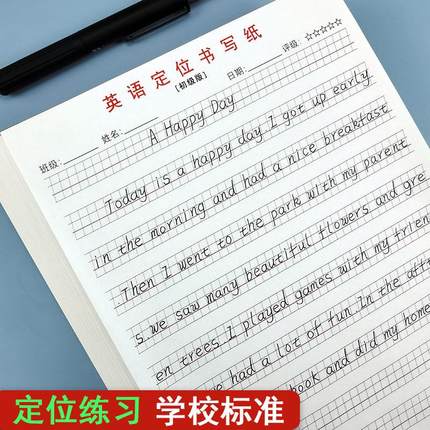 英语定位书写纸
[初级版]
评级:☆☆☆☆☆
班级: 姓名: 日期:
A Happy Day
Today is a happy day I got up early
in the morning and had a nice breakfast
Then I went to the park with my parent
s we saw many beautiful flowers and gre
en trees I played games with my frien
had a lot of fun In the
book and did my home
定位练习 学校标准